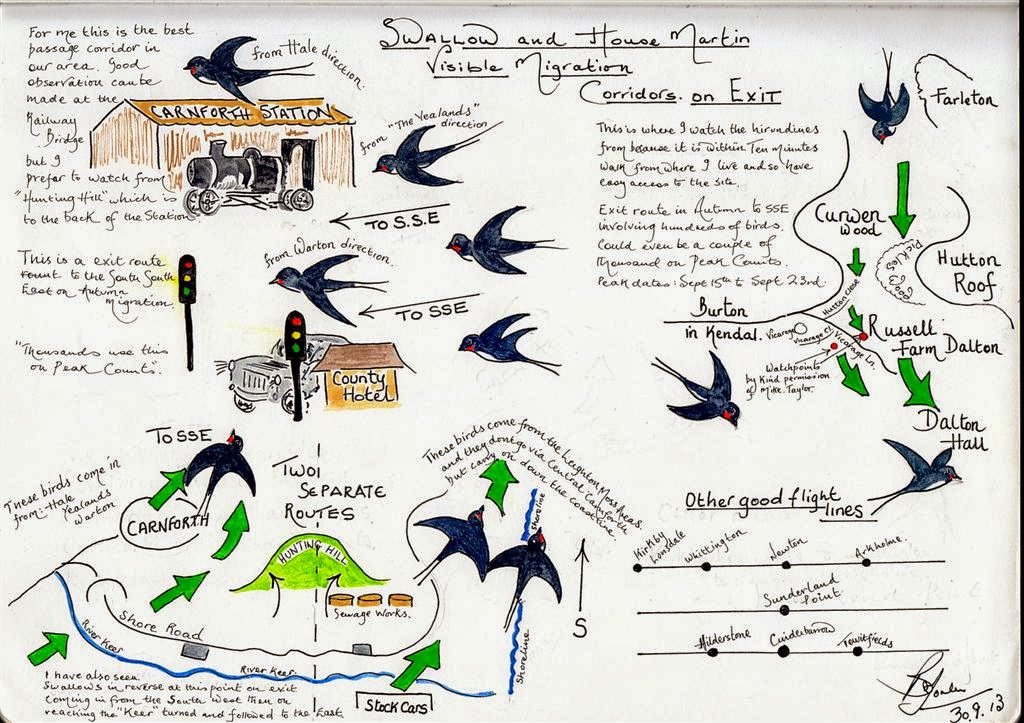 Swallow and House Martin
Visible Migration
Corridors on Exit
For me this is the best
passage corridor in
our area. Good
observation can be
made at the
Railway
Bridge
but I
prefer to watch from
"Hunting Hill" which is
to the back of the Station.
from Hale direction.
CARNFORTH STATION
from "The Yealands"
direction
TO S.S.E
This is a exit route
to the South South
East on Autumn
migration.
"Thousands use this
on Peak Counts".
from Warton direction.
TO SSE
County
Hotel
This is where I watch the hirundines
from because it is within Ten minutes
walk from where I live and so have
easy access to the site.
Exit route in Autumn to SSE
involving hundreds of birds.
Could even be a couple of
thousand on Peak Counts.
Peak dates: Sept 15th to Sept 23rd.
Farleton
Curwen
Wood
Pickles
Wood
Hutton
Roof
Hutton Close
Burton
in Kendal.
Vicarage
Vicarage Cl.
Vicarage Ln.
Russell
Farm Dalton
Watchpoints
by kind permission
of Mike Taylor.
Dalton
Hall
TO SSE
These birds come in
from: Hale
Yealands
Warton
CARNFORTH
TWO
SEPARATE
ROUTES
HUNTING HILL
Sewage Works.
Shore Road
River Keer
River Keer.
I have also seen
Swallows in reverse at this point on exit
coming in from the South West then on
reaching the "Keer" turned and followed to the East.
STOCK CARS
These birds come from the Leighton Moss Areas.
and they dont go via Central Carnforth
but carry on down the coastline.
shoreline
Shoreline
S
Other good flight
lines
Kirkby
Lonsdale
Whittington
Newton
Arkholme.
Sunderland
Point
Hilderstone
Cinderbarrow
Tewitfields
30.9.13